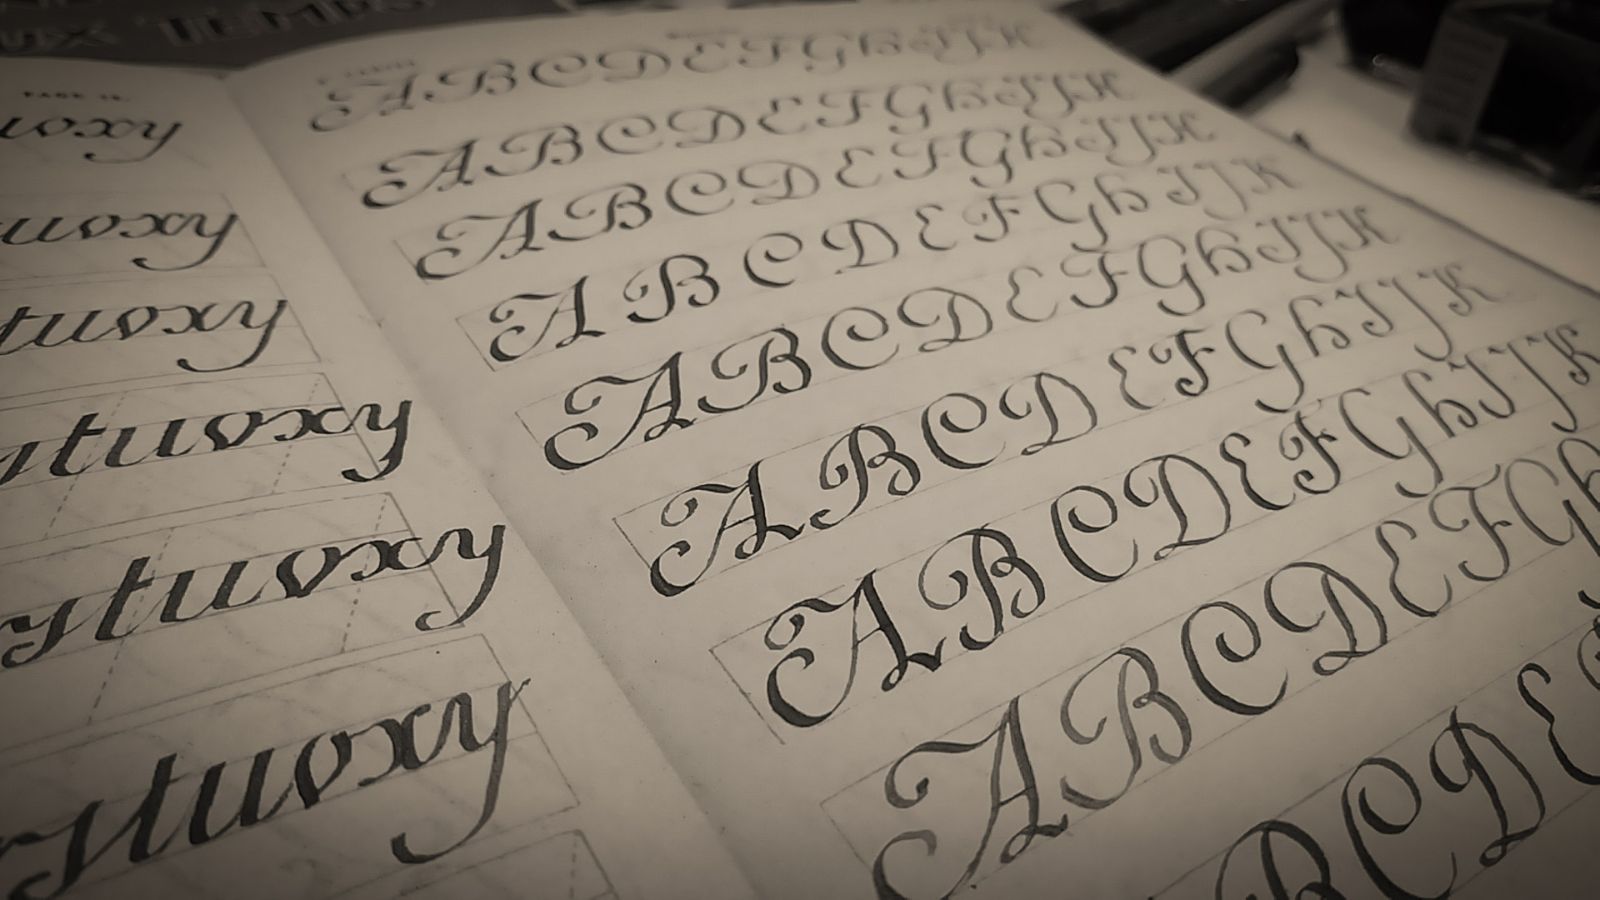 UX TEMPS
vxy
uvxy
tuvxy
stuvxy
stuvxy
stuvxy
ABCDEFGHIJK
ABCDEFGHIJK
ABCDEFGHIJK
ABCDEFGHIJK
ABCDEFGHIJK
ABCDEFGHIJK
ABCDEFGHIJK
ABCDEFG
BCDE